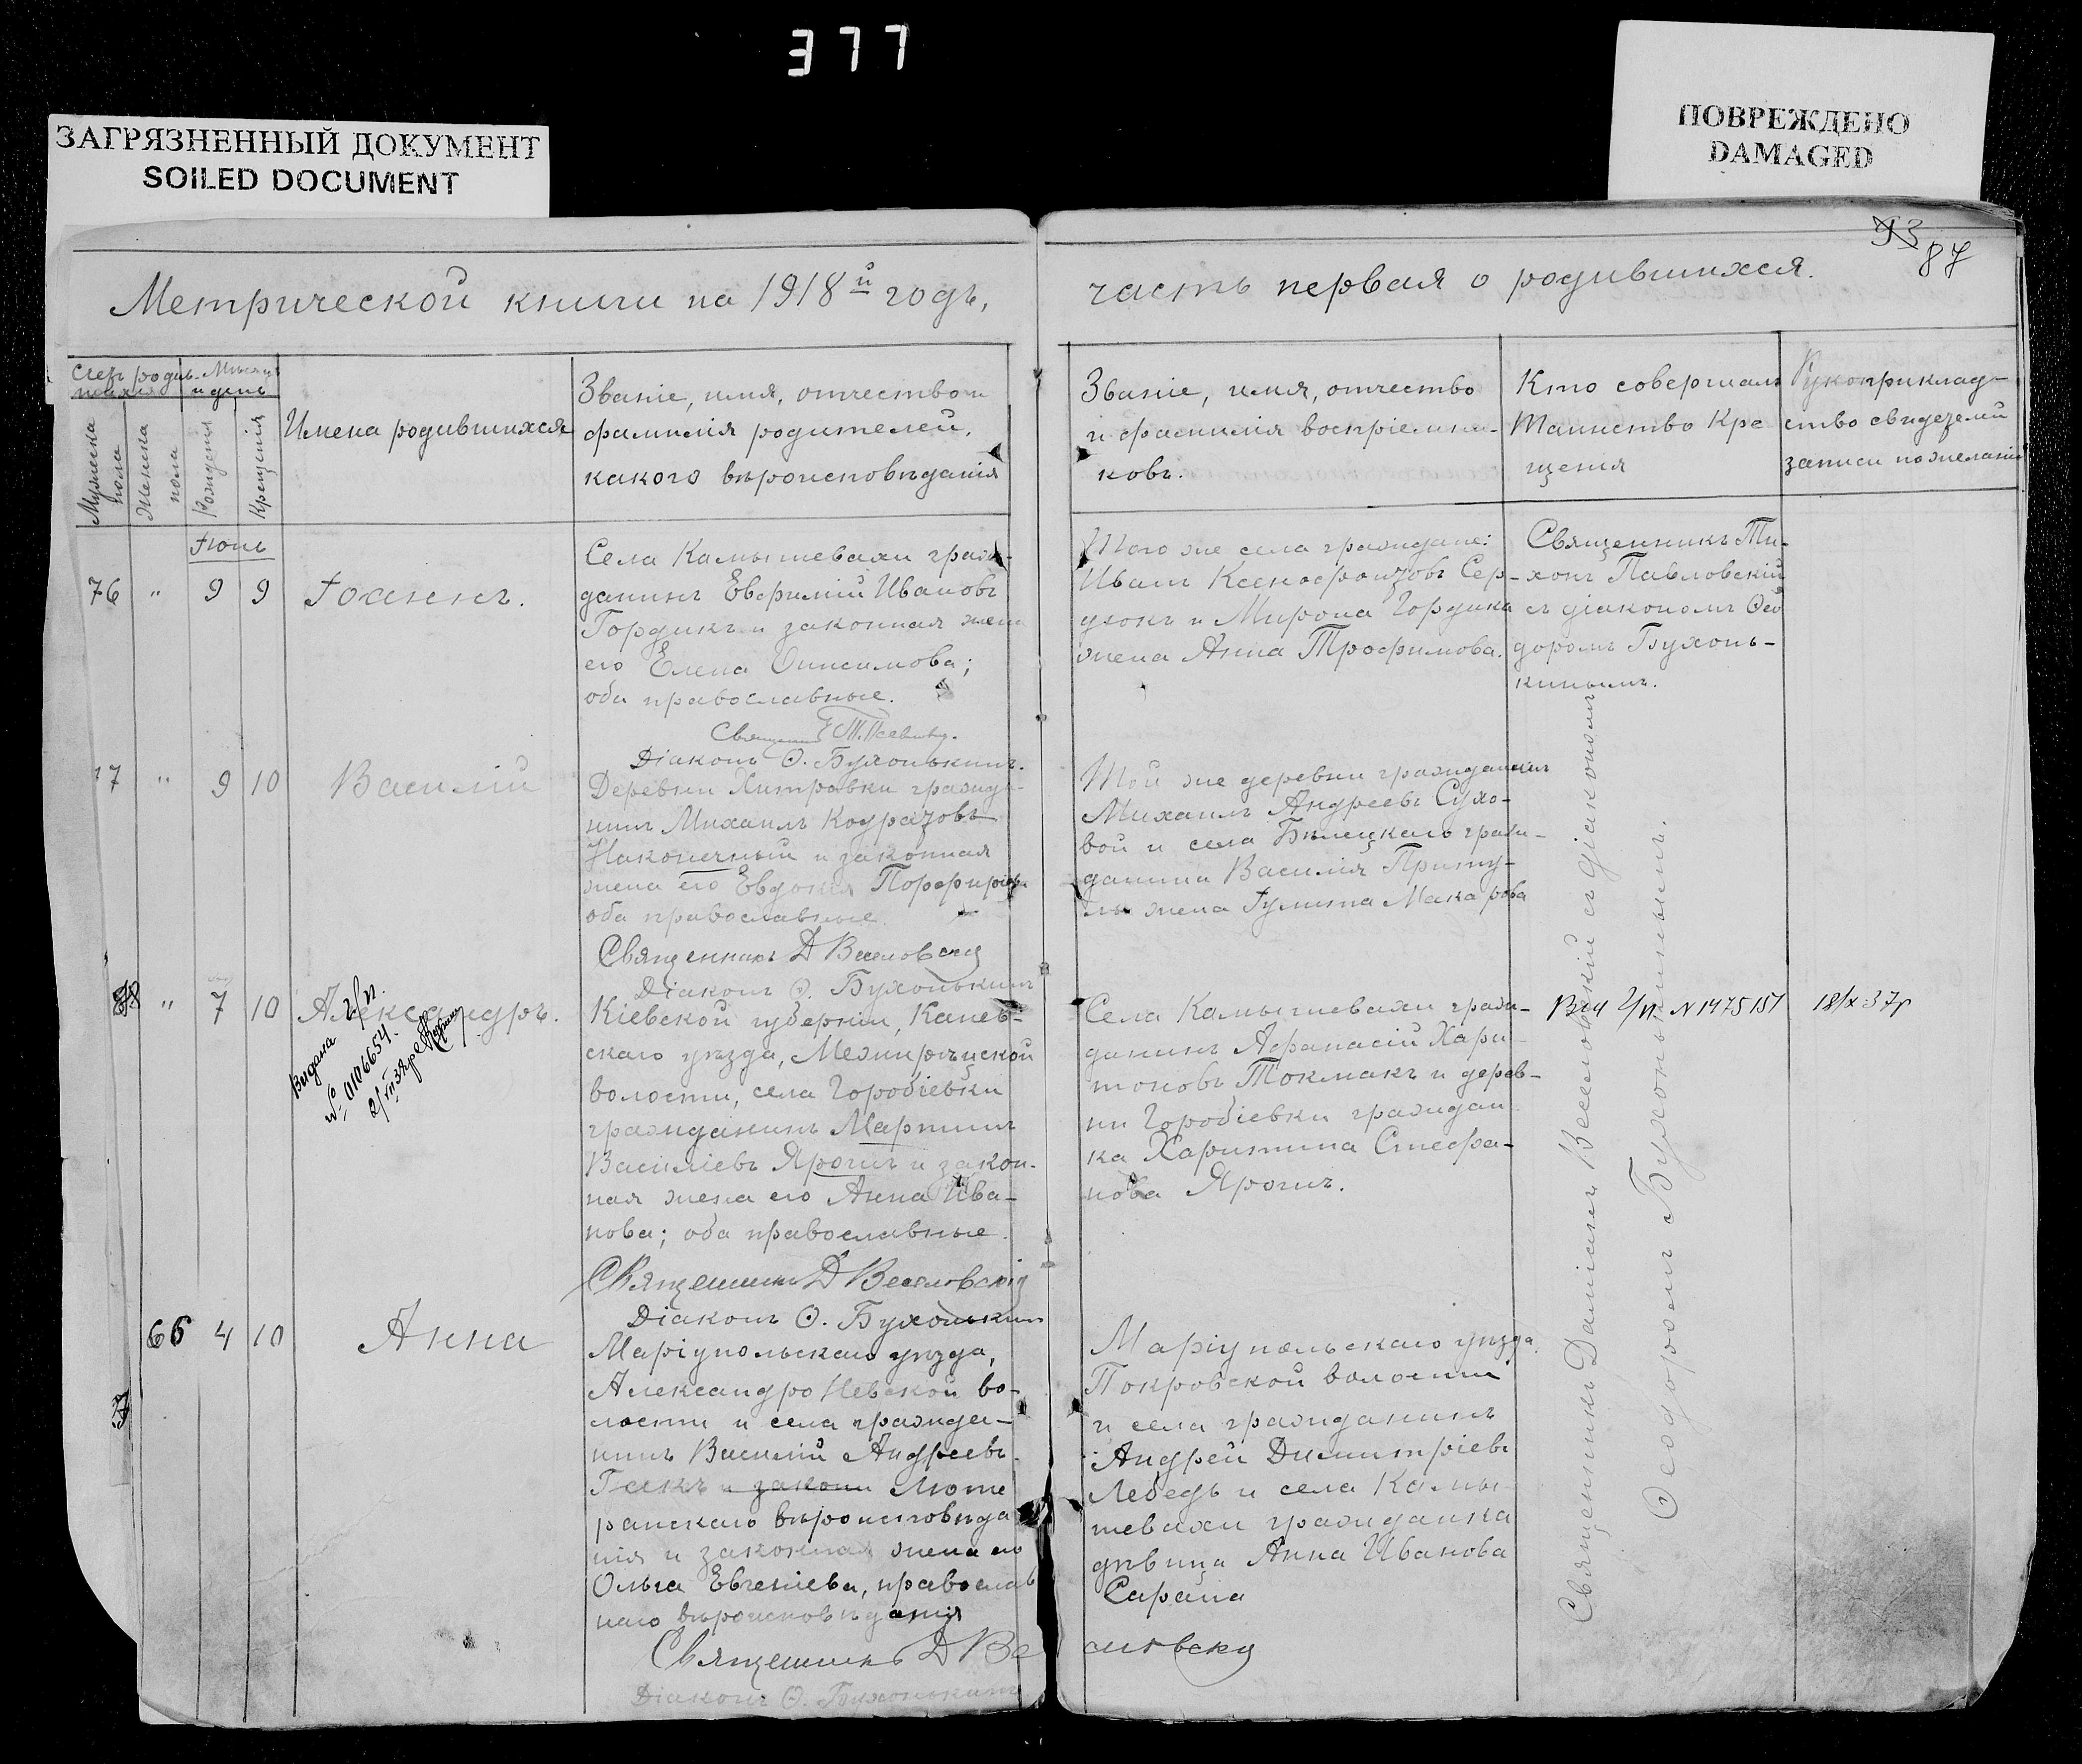 377
ЗАГРЯЗНЕННЫЙ ДОКУМЕНТ
SOILED DOCUMENT
ПОВРЕЖДЕНО
DAMAGED
93
87
Метрической книги на 1918й годъ,
часть первая о родившихся.
Счетъ родив-
шихся
Мѣсяцъ
и день
Мужеска
пола
Женска
пола
Рожденія
Крещенія
Имена родившихся
Званіе, имя, отчество и
фамилія родителей,
какого вѣроисповѣданія
Званіе, имя, отчество
и фамилія воспріемни-
ковъ.
Кто совершалъ
Таинство Кре
щенія
Рукоприклад-
ство свидетелей
записи по желанію
Іюнь
76 " 9 9 Іоаннъ.
Села Камышевахи граж-
данинъ Евфимій Ивановъ
Гордикъ и законная жена
его Елена Онисимова;
оба православные.
Діаконъ Ѳ. Бухонькинъ.
Того же села граждане:
Иванъ Ксенофонтовъ Сер-
дюкъ и Мирона Гордика
жена Анна Трофимова.
Священникъ Ти-
хонъ Павловскій
съ діакономъ Ѳео
доромъ Бухонь-
кинымъ.
77 " 9 10 Василій
Деревни Хитровки гражда-
нинъ Михаилъ Кодратовъ
Наконечный и законная
жена его Евдокія Порфирьева
оба православные.
Священникъ Д Веселовскій
Діаконъ Ѳ. Бухонькинъ
Той же деревни гражданинъ
Михаилъ Андреевъ Сухо-
вой и села Бѣлецкаго граж-
данина Василія Приту-
лы жена Іулита Макарова
78 " 7 10 Александръ.
Видана
№ 0106654.
Кіевской губерніи, Канев-
скаго уѣзда, Межирѣцской
волости, села Горобіевки
гражданинъ Мартинъ
Василіевъ Ярошъ и закон-
ная жена его Анна Ива-
нова; оба православные.
Священникъ Д Веселовскій
Діаконъ Ѳ. Бухонькинъ
Села Камышевахи граж-
данинъ Афанасій Хари-
тоновъ Токмакъ и дерев-
ни Горобіевки граждан
ка Харитина Стефа-
нова Ярошъ.
№ 1475151
18/х 37р
66 4 10 Анна
Маріупольскаго уѣзда,
Александро Невской во-
лости и села гражда-
нинъ Василій Андреевъ
Гекъ и законн Люте
ранскаго вѣроисповѣда
нія и законная жена его
Ольга Евгеніева, православ
наго вѣроисповѣданія
Священникъ Д Веселовскій
Діаконъ Ѳ. Бухонькинъ
Маріупольскаго уѣзда
Покровской волости
и села гражданинъ
Андрей Димитріевъ
Лебедь и села Камы-
шевахи гражданка
дѣвица Анна Иванова
Сарана
Священникъ Даніилъ Веселовскій съ діакономъ
Ѳеодоромъ Бухонькинымъ.